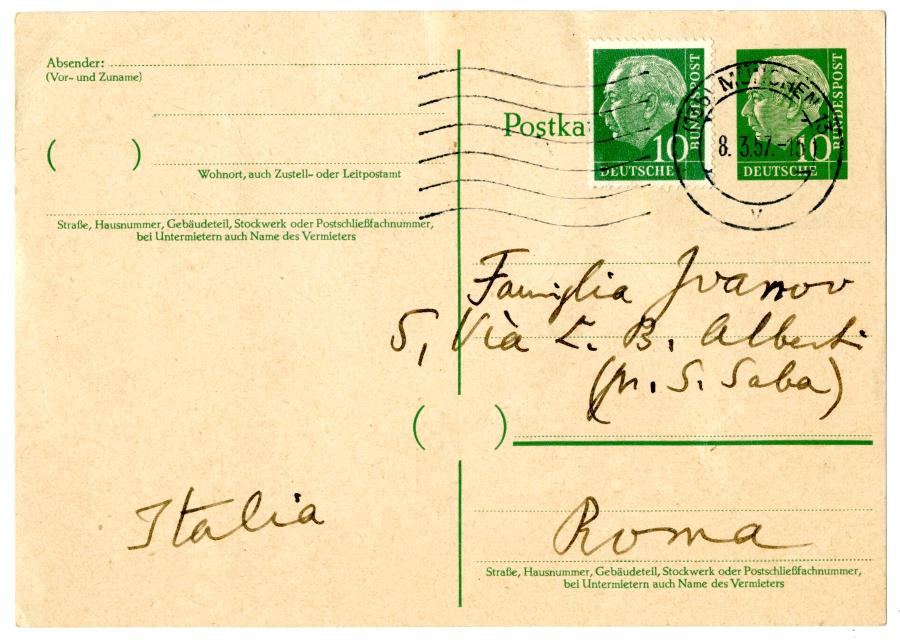 Absender:
(Vor- und Zuname)
( )
Wohnort, auch Zustell- oder Leitpostamt
Straße, Hausnummer, Gebäudeteil, Stockwerk oder Postschließfachnummer,
bei Untermietern auch Name des Vermieters
Postka
10
DEUTSCHE
BUNDESPOST
MÜNCHEN
8. 3.57.-15
10
DEUTSCHE
BUNDESPOST
Famiglia Ivanov
5, Via L. B. Alberti
(p. S. Saba)
( )
Italia
Roma
Straße, Hausnummer, Gebäudeteil, Stockwerk oder Postschließfachnummer,
bei Untermietern auch Name des Vermieters